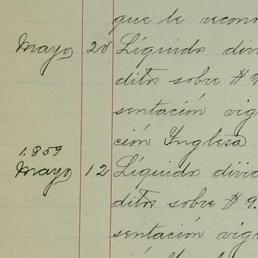 que le recon
Mayo 20 Líquido divi
ditos sobre # 9
sentación vig
ción Inglesa
1.859
Mayo 12 Líquido divid
ditos sobre # 9.
sentación vigo